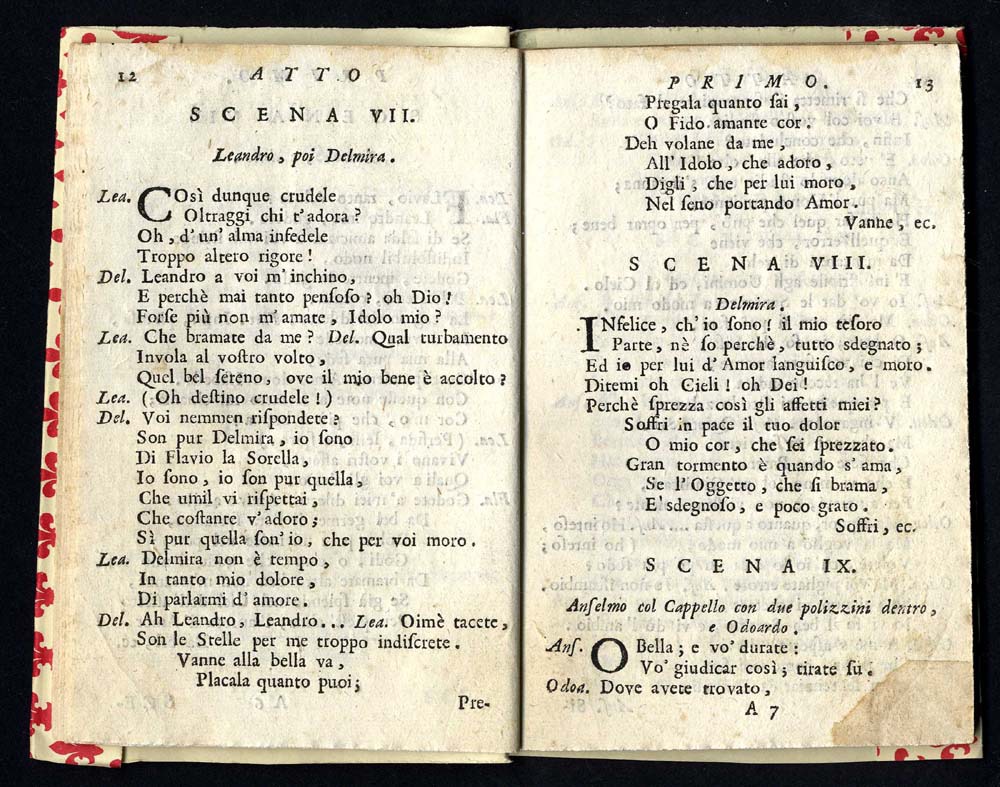 12 ATTO
SCENA VII.
Leandro, poi Delmira.
Lea. COsì dunque crudele
Oltraggi chi t'adora?
Oh, d'un' alma infedele
Troppo altero rigore!
Del. Leandro a voi m'inchino,
E perchè mai tanto penſoſo? oh Dio!
Forſe più non m' amate, Idolo mio?
Lea. Che bramate da me? Del. Qual turbamento
Invola al voſtro volto,
Quel bel ſereno, ove il mio bene è accolto?
Lea. (Oh deſtino crudele!)
Del. Voi nemmen riſpondete?
Son pur Delmira, io ſono
Di Flavio la Sorella,
Io ſono, io ſon pur quella,
Che umil vi riſpettai,
Che coſtante v'adoro;
Sì pur quella ſon'io, che per voi moro.
Lea. Delmira non è tempo,
In tanto mio dolore,
Di parlarmi d' amore.
Del. Ah Leandro, Leandro... Lea. Oimè tacete,
Son le Stelle per me troppo indiſcrete.
Vanne alla bella va,
Placala quanto puoi;
Pre-
PRIMO. 13
Pregala quanto ſai,
O Fido amante cor.
Deh volane da me,
All' Idolo, che adoro,
Digli, che per lui moro,
Nel ſeno portando Amor.
Vanne, ec.
SCENA VIII.
Delmira.
INfelice, ch' io ſono! il mio teſoro
Parte, nè ſo perchè, tutto sdegnato;
Ed io per lui d' Amor languiſco, e moro.
Ditemi oh Cieli! oh Dei!
Perchè ſprezza così gli affetti miei?
Soffri in pace il tuo dolor
O mio cor, che ſei ſprezzato.
Gran tormento è quando s' ama,
Se l' Oggetto, che ſi brama,
E' sdegnoſo, e poco grato.
Soffri, ec.
SCENA IX.
Anſelmo col Cappello con due polizzini dentro,
e Odoardo.
Anſ. O Bella; e vo' durate:
Vo' giudicar così; tirate ſu.
Odoa. Dove avete trovato,
A 7